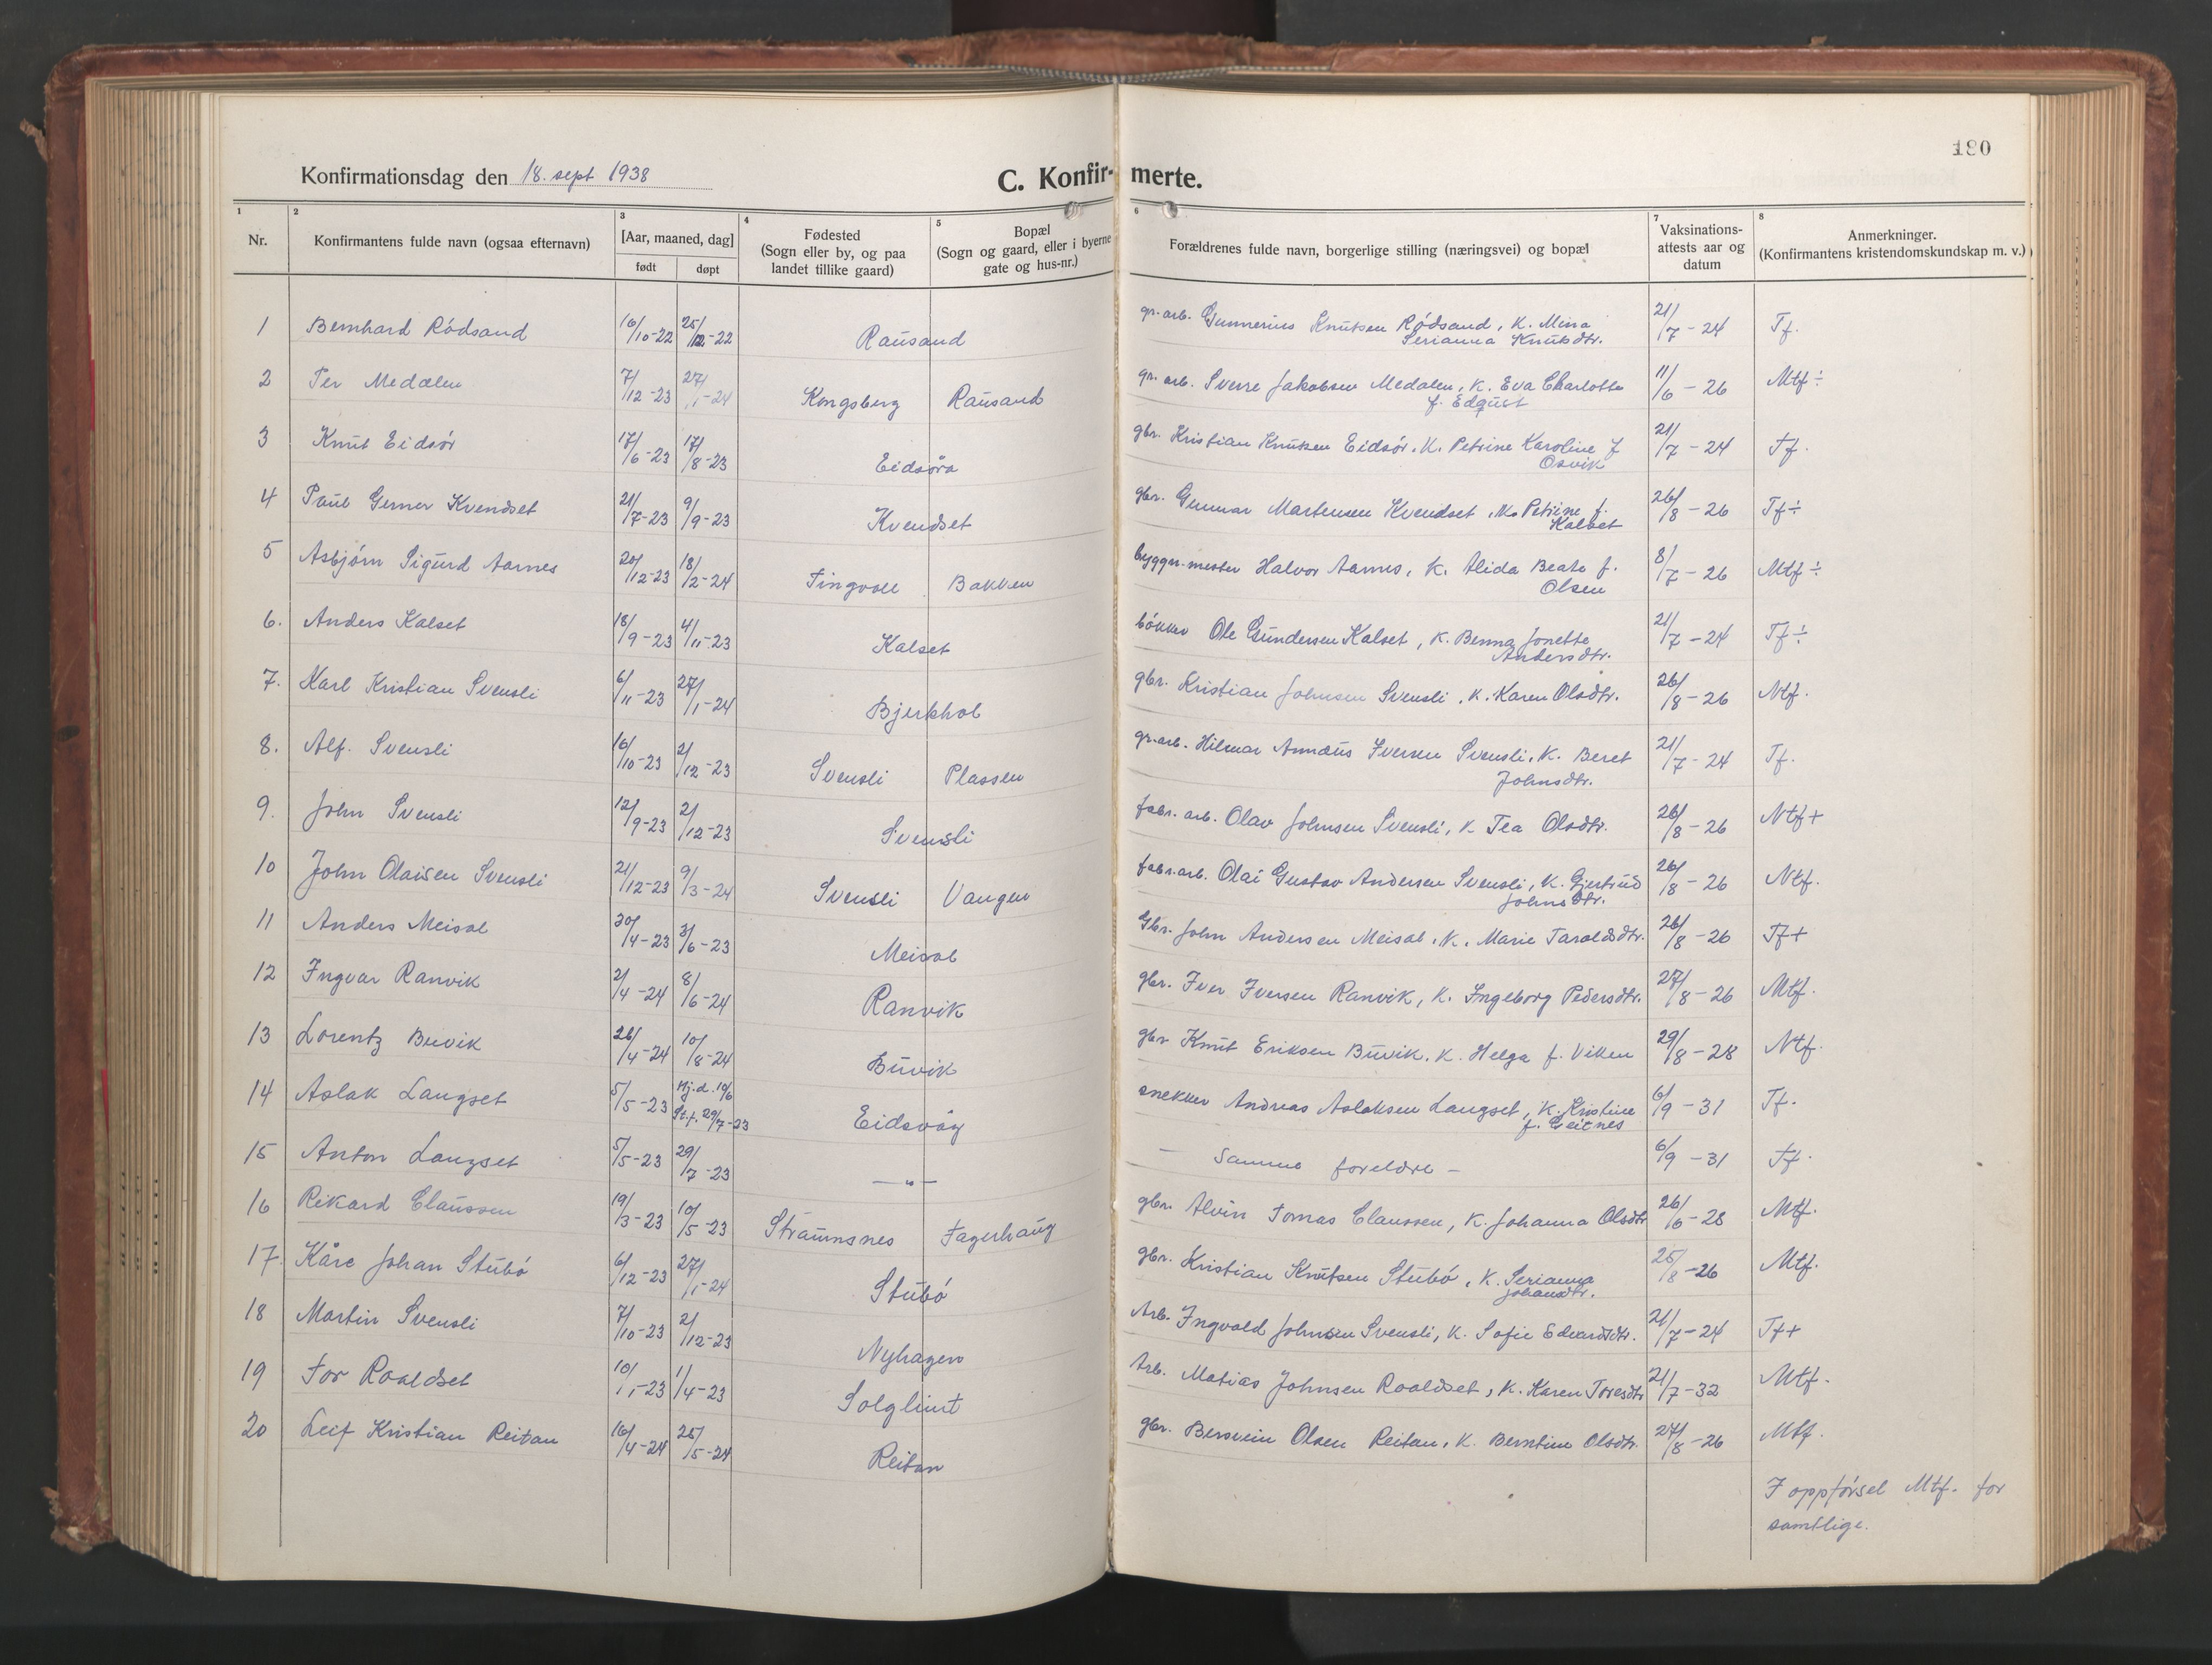 190
Konfirmationsdag den 18. sept 1938
C. Konfir- merte.
1 2 3 4 5 6 7 8
Nr. | Konfirmantens fulde navn (ogsaa efternavn) | [Aar, maaned, dag] født døpt | Fødested (Sogn eller by, og paa landet tillike gaard) | Bopæl (Sogn og gaard, eller i byerne gate og hus-nr.) | Forældrenes fulde navn, borgerlige stilling (næringsvei) og bopæl | Vaksinations-attests aar og datum | Anmerkninger. (Konfirmantens kristendomskundskap m. v.)
1 Bernhard Rødsand 16/10-22 25/12-22 Rausand gr.arb. Gunnerius Knutsen Rødsand, K. Mina Serianna Knutsdtr. 21/7-24 Tf.
2 Per Medalen 7/12-23 27/1-24 Kongsberg Rausand gr. arb. Sverre Jakobsen Medalen, K. Eva Charlotte f. Edquist 11/6-26 Mtf ÷
3 Knut Eidsør 17/6-23 17/8-23 Eidsøra gbr. Kristian Knutsen Eidsør, K. Petrine Karoline f. Osvik 21/7-24 Tf.
4 Paul Gerner Kvendset 21/7-23 9/9-23 Kvendset gbr. Gunnar Martensen Kvendset, K. Petrine f. Kalset 26/8-26 Tf ÷
5 Asbjørn Sigurd Aarnes 20/12-23 18/2-24 Tingvoll Bakken byggm.mester Halvor Aarnes, K. Alida Beate f. Olsen 8/7-26 Mtf ÷
6. Anders Kalset 18/9-23 4/11-23 Kalset bøkker Ole Gundersen Kalset, K. Benna Jonette Andersdtr. 21/7-24 Tf ÷
7. Karl Kristian Svensli 6/11-23 27/1-24 Bjerkhol gbr. Kristian Johnsen Svensli, K. Karen Olsdtr. 26/8-26 Ntf.
8. Alf. Svensli 16/10-23 2/12-23 Svensli Plassen gr.arb. Hilmar Annæus Iversen Svensli, K. Beret Johnsdtr. 21/7-24 Tf.
9. John Svensli 12/9-23 2/12-23 Svensli fabr. arb. Olav Johnsen Svensli, K Tea Olsdtr. 26/8-26 Ntf+
10 John Olaisen Svensli 21/12-23 9/3-24 Svensli Vangen fabr.arb. Olai Gustav Andersen Svensli, K. Gjertrud Johnsdtr. 26/8-26 Ntf.
11 Anders Meisal 30/4-23 3/6-23 Meisal Gbr. John Andersen Meisal, K. Marie Taraldsdtr. 26/8-26 Tf+
12 Ingvar Ranvik 2/4-24 8/6-24 Ranvik gbr. Iver Iversen Ranvik, K. Ingeborg Pedersdtr. 27/8-26 Mtf.
13 Lorentz Buvik 26/4-24 10/8-24 Buvik gbr Knut Eriksen Buvik, K. Helga f. Viken 29/8-28 Ntf.
14 Aslak Langset 5/5-23 Hj.d. 10/6 St.f. 29/7-23 Eidsvåg snekker Andreas Aslaksen Langset, K. Kristine f. Geitnes 6/9-31 Tf.
15 Anton Langset 5/5-23 29/7-23 — " — — Samme foreldre — 6/9-31 Tf.
16 Rikard Claussen 19/3-23 10/5-23 Straumsnes Fagerhaug gbr. Alvin Tomas Claussen, K. Johanna Olsdtr 26/6-28 Mtf.
17. Kåre Johan Stubø 6/12-23 27/1-24 Stubø gbr. Kristian Knutsen Stubø, K. Serianna Johansdtr. 25/8-26 Mtf.
18 Martin Svensli 7/10-23 2/12-23 Nyhagen Arb. Ingvald Johnsen Svensli, K. Sofie Edvardsdtr. 21/7-24 Tf+
19 Tor Roaldset 10/1-23 1/4-23 Solglimt Arb. Matias Johnsen Roaldset, K. Karen Toresdtr 21/7-32 Mtf.
20 Leif Kristian Reitan 16/4-24 25/5-24 Reitan gbr. Bersvein Olsen Reitan, K. Berntine Olsdtr. 27/8-26 Mtf.
I oppførsel Mtf. for
samtlige.